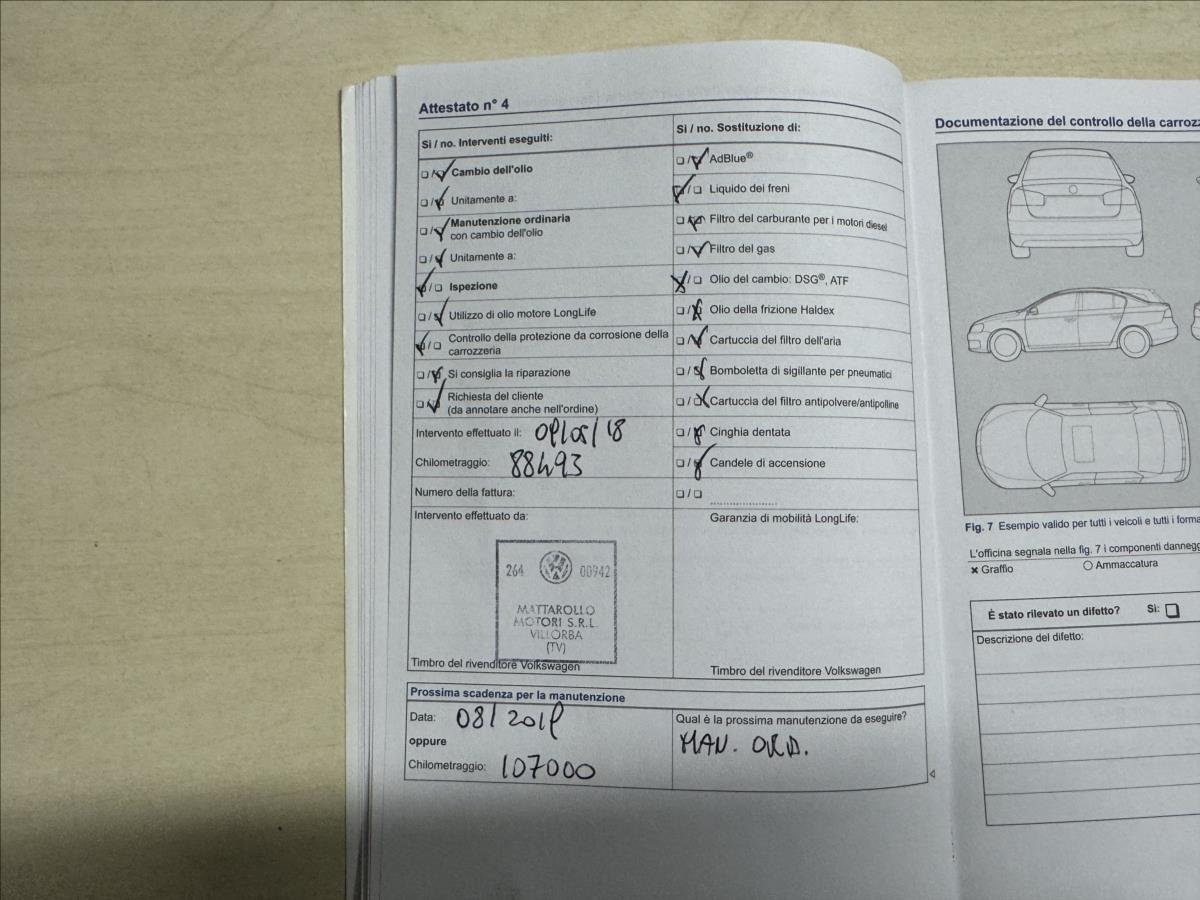 Attestato n° 4
Si / no. Interventi eseguiti:
☐/☑ Cambio dell'olio
☐/☑ Unitamente a:
☐/☑ Manutenzione ordinaria
con cambio dell'olio
☐/☑ Unitamente a:
☑/☐ Ispezione
☐/☑ Utilizzo di olio motore LongLife
☑/☐ Controllo della protezione da corrosione della
carrozzeria
☐/☑ Si consiglia la riparazione
☐/☑ Richiesta del cliente
(da annotare anche nell'ordine)
Intervento effettuato il: 09/05/18
Chilometraggio: 88493
Numero della fattura:
Intervento effettuato da:
264 00942
MATTAROLLO
MOTORI S.R.L.
VILLORBA
(TV)
Timbro del rivenditore Volkswagen
Si / no. Sostituzione di:
☐/☑ AdBlue®
☑/☐ Liquido dei freni
☐/☑ Filtro del carburante per i motori diesel
☐/☑ Filtro del gas
☑/☐ Olio del cambio: DSG®, ATF
☐/☑ Olio della frizione Haldex
☐/☑ Cartuccia del filtro dell'aria
☐/☑ Bomboletta di sigillante per pneumatici
☐/☑ Cartuccia del filtro antipolvere/antipolline
☐/☑ Cinghia dentata
☐/☑ Candele di accensione
☐/☐ ..................
Garanzia di mobilità LongLife:
Timbro del rivenditore Volkswagen
Prossima scadenza per la manutenzione
Data: 08/2019
oppure
Chilometraggio: 107000
Qual è la prossima manutenzione da eseguire?
MAN. ORD.
Documentazione del controllo della carrozz
Fig. 7 Esempio valido per tutti i veicoli e tutti i forma
L'officina segnala nella fig. 7 i componenti danneg
✖ Graffio ○ Ammaccatura
È stato rilevato un difetto? Si: ☐
Descrizione del difetto: